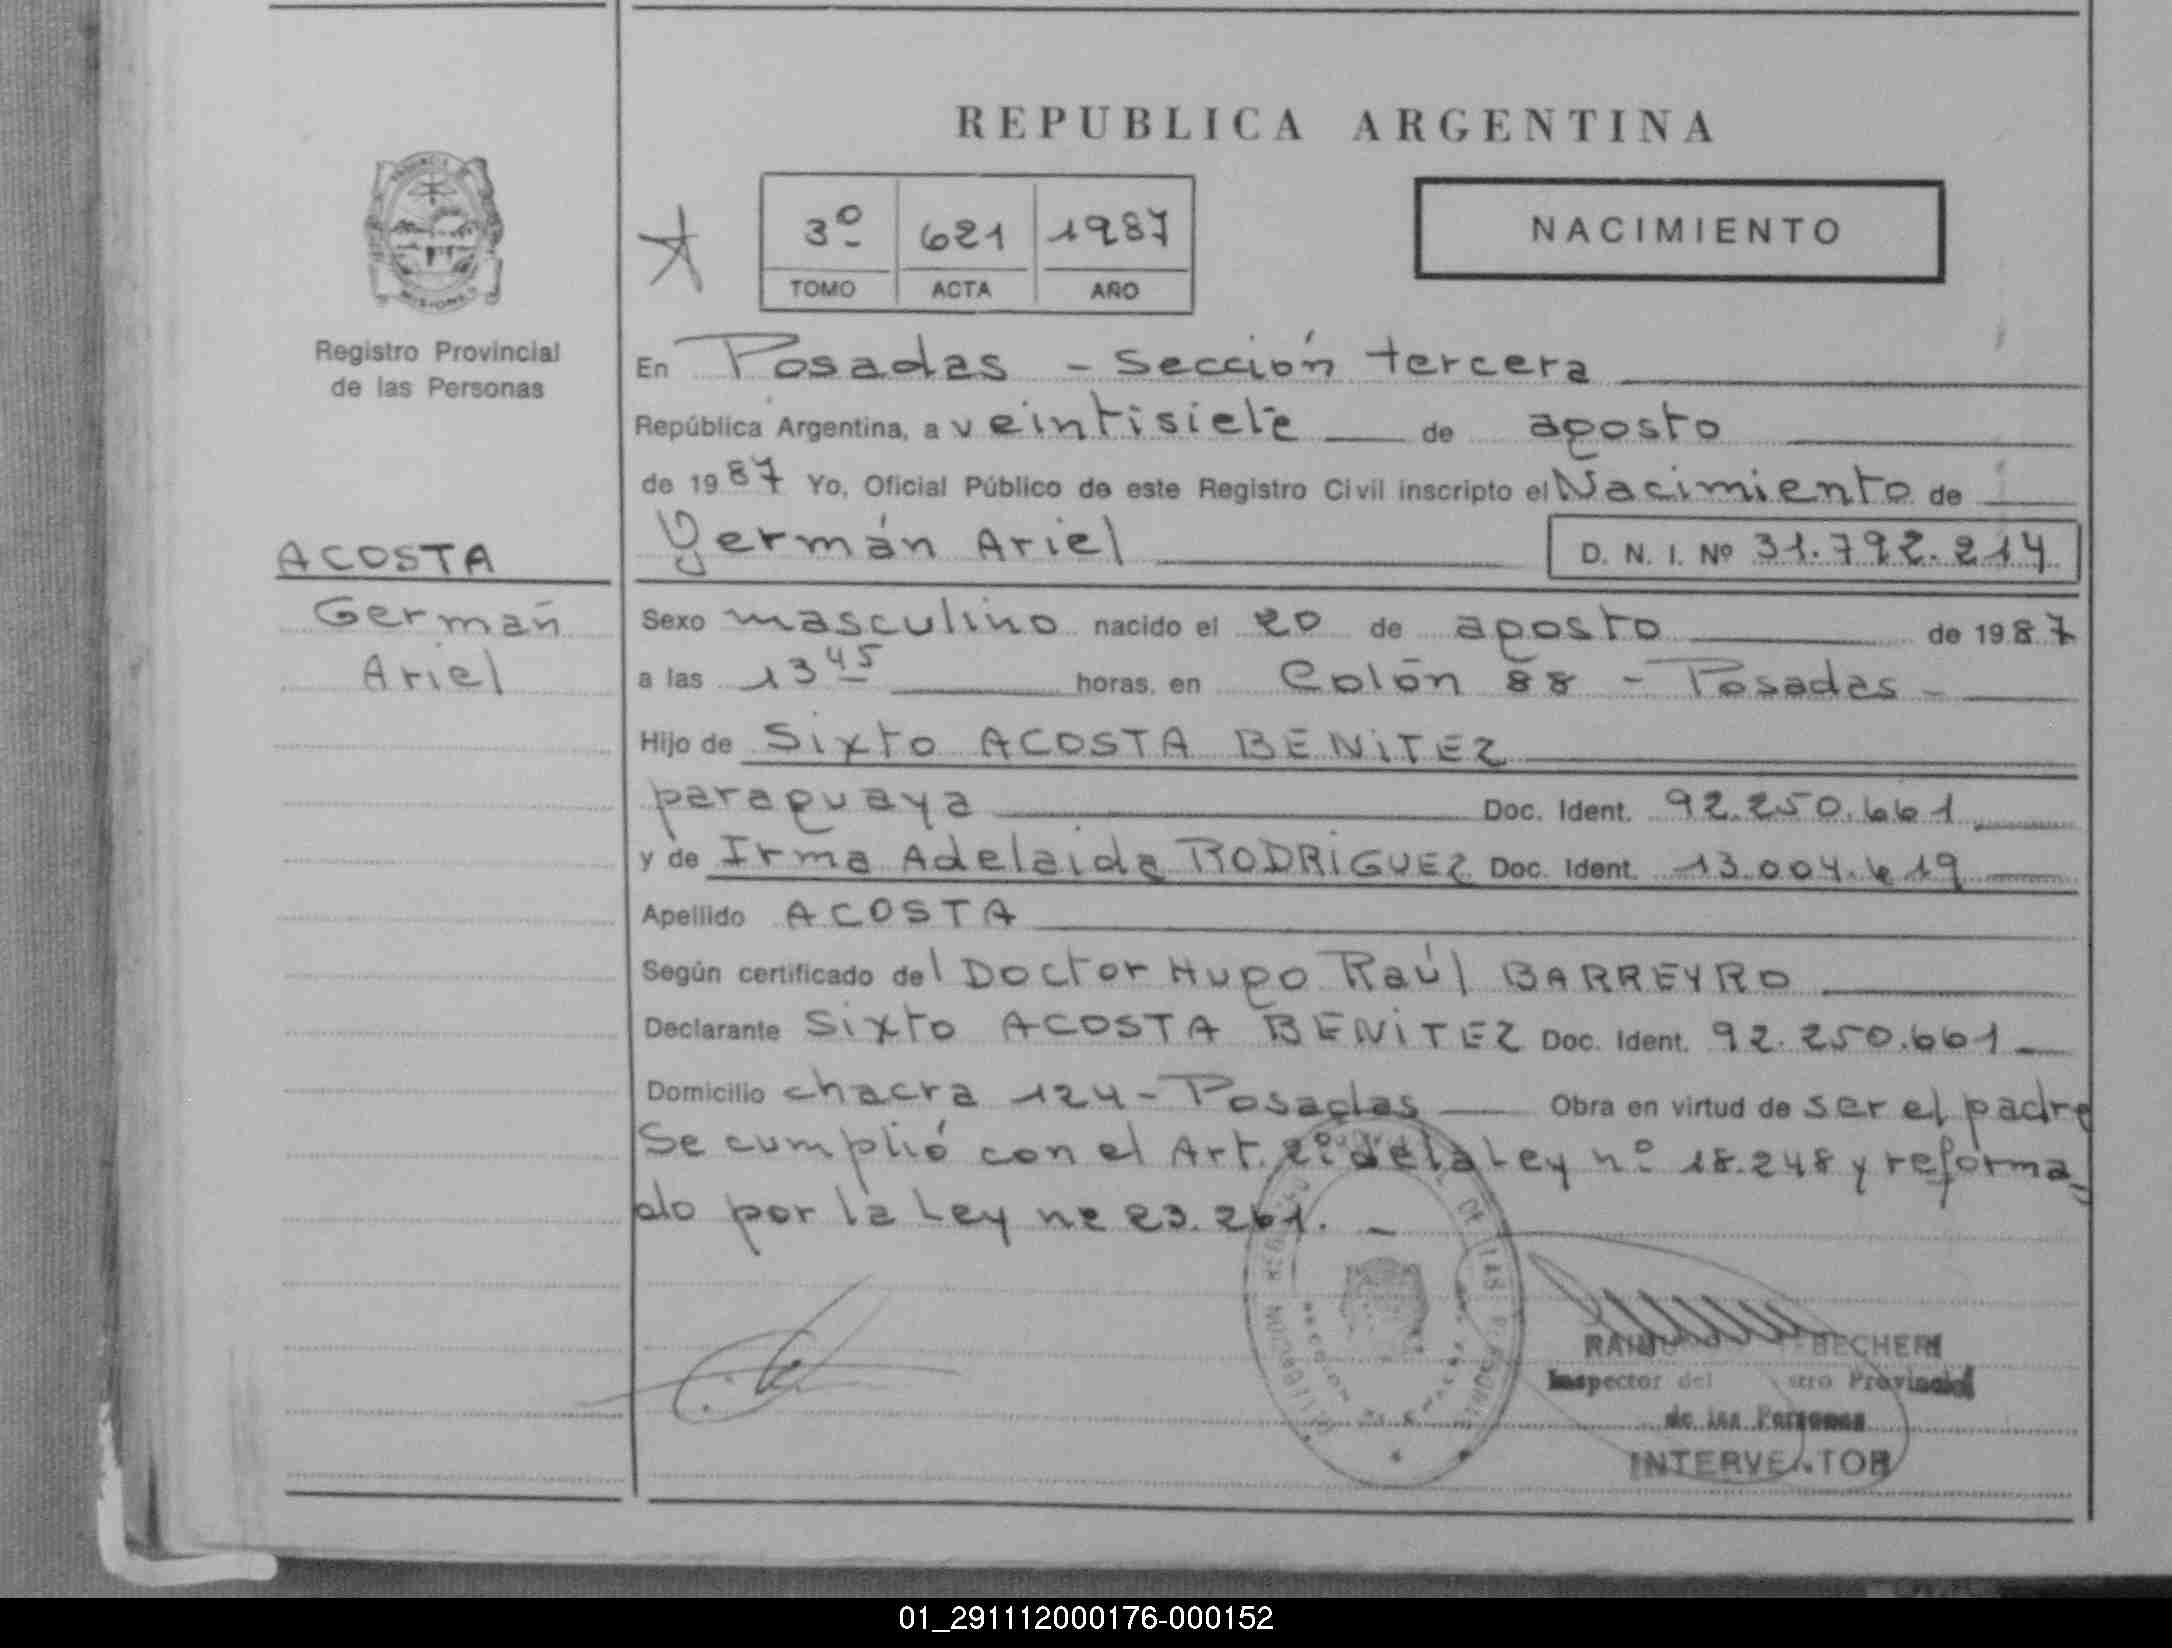 REPUBLICA ARGENTINA
PROVINCIA DE
MISIONES
Registro Provincial
de las Personas
3º 621 1987
TOMO ACTA AÑO
NACIMIENTO
En Posadas - Sección tercera
República Argentina, a veintisiete de agosto
de 1987 Yo, Oficial Público de este Registro Civil inscripto el Nacimiento de
Germán Ariel D. N. I. Nº 31.792.214
ACOSTA
Germán
Ariel
Sexo masculino nacido el 20 de agosto de 1987
a las 13 45 horas, en Colón 88 - Posadas -
Hijo de Sixto ACOSTA BENITEZ
paraguaya Doc. Ident. 92.250.661
y de Irma Adelaida RODRIGUEZ Doc. Ident. 13.004.619
Apellido ACOSTA
Según certificado del Doctor Hugo Raúl BARREYRO
Declarante Sixto ACOSTA BENITEZ Doc. Ident. 92.250.661
Domicilio chacra 124 - Posadas Obra en virtud de ser el padre
Se cumplió con el Art. 2º de la Ley nº 18.248 y reforma-
do por la Ley nº 23.261. -
DE LAS
BECHERI
Inspector del Provincial
de las Personas
INTERVENTOR
01_291112000176-000152